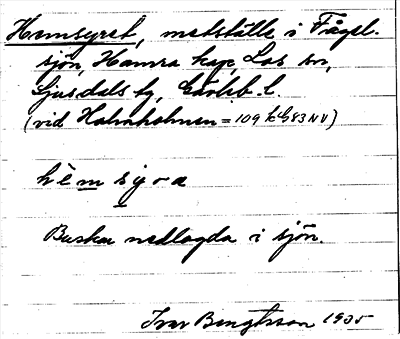 Hemsyret, metställe i Fågel-
sjön, Hamra kap., Los sn,
Ljusdals tg, Gävleb. l.
(vid Holmholmen = 109 83 NV)
hem syra
Buskar nedlagda i sjön.
Ivar Bengtsson 1935